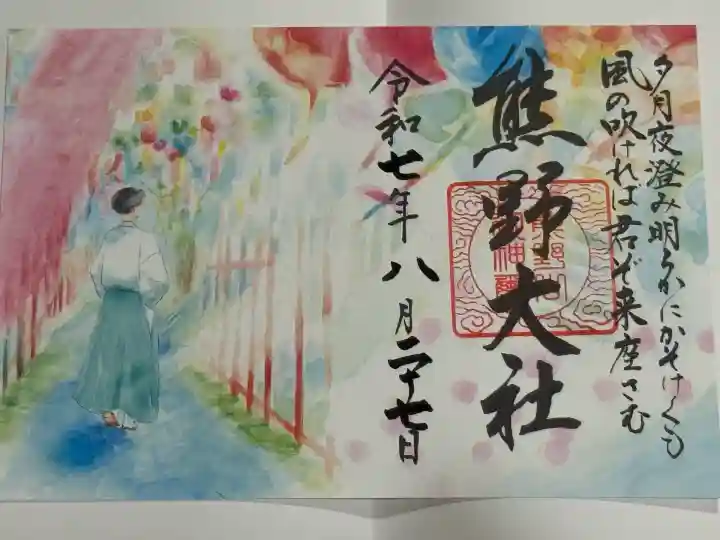 夕月夜澄み明らかにかそけくも
風の吹ければ君ぞ来座さむ
熊野大社
令和七年八月二十七日